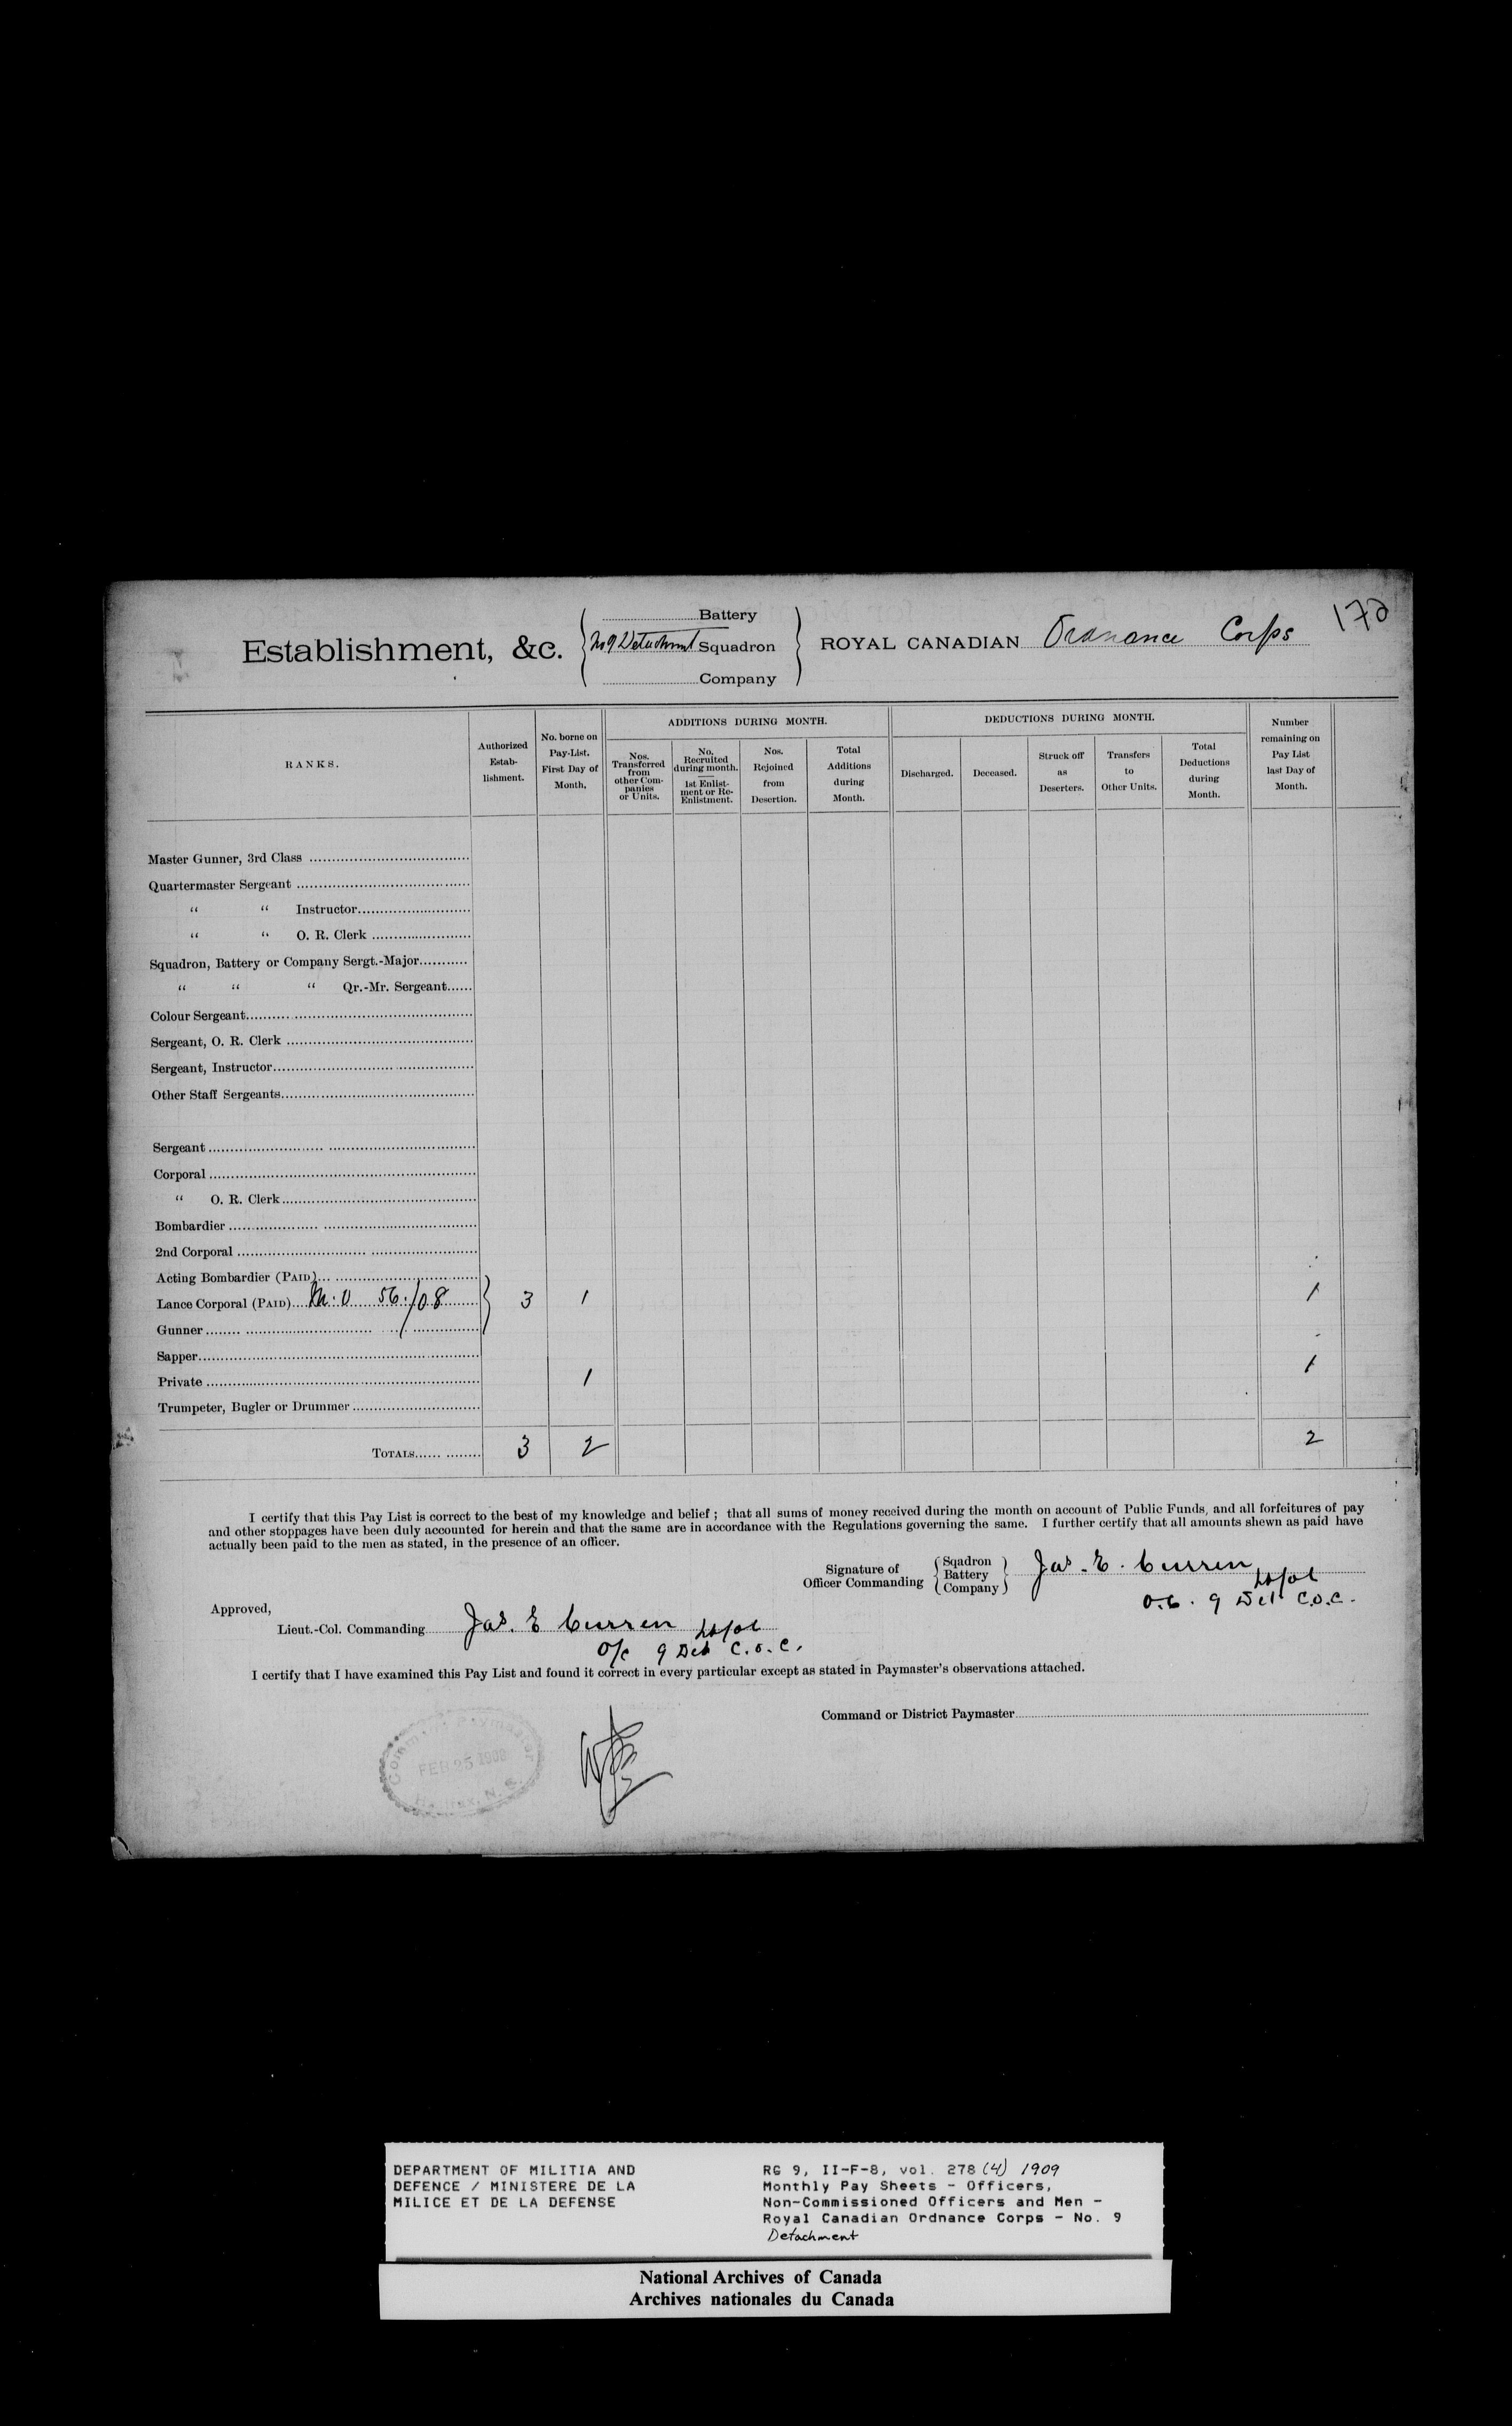 170
Establishment, &c.
Battery
No 9 Detachment Squadron
Company
ROYAL CANADIAN Ordnance Corps
RANKS.
Authorized Estab-lishment.
No. borne on Pay-List. First Day of Month.
ADDITIONS DURING MONTH.
Nos. Transferred from other Com-panies or Units.
No. Recruited during month. 1st Enlist-ment or Re-Enlistment.
Nos. Rejoined from Desertion.
Total Additions during Month.
DEDUCTIONS DURING MONTH.
Discharged.
Deceased.
Struck off as Deserters.
Transfers to Other Units.
Total Deductions during Month.
Number remaining on Pay List last Day of Month.
Master Gunner, 3rd Class
Quartermaster Sergeant
" " Instructor
" " O. R. Clerk
Squadron, Battery or Company Sergt.-Major
" " " Qr.-Mr. Sergeant
Colour Sergeant
Sergeant, O. R. Clerk
Sergeant, Instructor
Other Staff Sergeants
Sergeant
Corporal
" O. R. Clerk
Bombardier
2nd Corporal
Acting Bombardier (PAID)
Lance Corporal (PAID) M.O 56/08 3 1 1
Gunner
Sapper
Private 1 1
Trumpeter, Bugler or Drummer
TOTALS 3 2 2
I certify that this Pay List is correct to the best of my knowledge and belief ; that all sums of money received during the month on account of Public Funds, and all forfeitures of pay
and other stoppages have been duly accounted for herein and that the same are in accordance with the Regulations governing the same. I further certify that all amounts shewn as paid have
actually been paid to the men as stated, in the presence of an officer.
Signature of Officer Commanding
Sqadron
Battery
Company
Jas. E. Curren Lt/Col
O.C. 9 Det C.O.C.
Approved,
Lieut.-Col. Commanding Jas. E Curren Lt/Col
O/c 9 Det C.O.C.
I certify that I have examined this Pay List and found it correct in every particular except as stated in Paymaster's observations attached.
Command or District Paymaster
Command Paymaster
FEB 25 1909
Halifax, N. S.
DEPARTMENT OF MILITIA AND
DEFENCE / MINISTERE DE LA
MILICE ET DE LA DEFENSE
RG 9, II-F-8, vol. 278 (4) 1909
Monthly Pay Sheets - Officers,
Non-Commissioned Officers and Men -
Royal Canadian Ordnance Corps - No. 9
Detachment
National Archives of Canada
Archives nationales du Canada